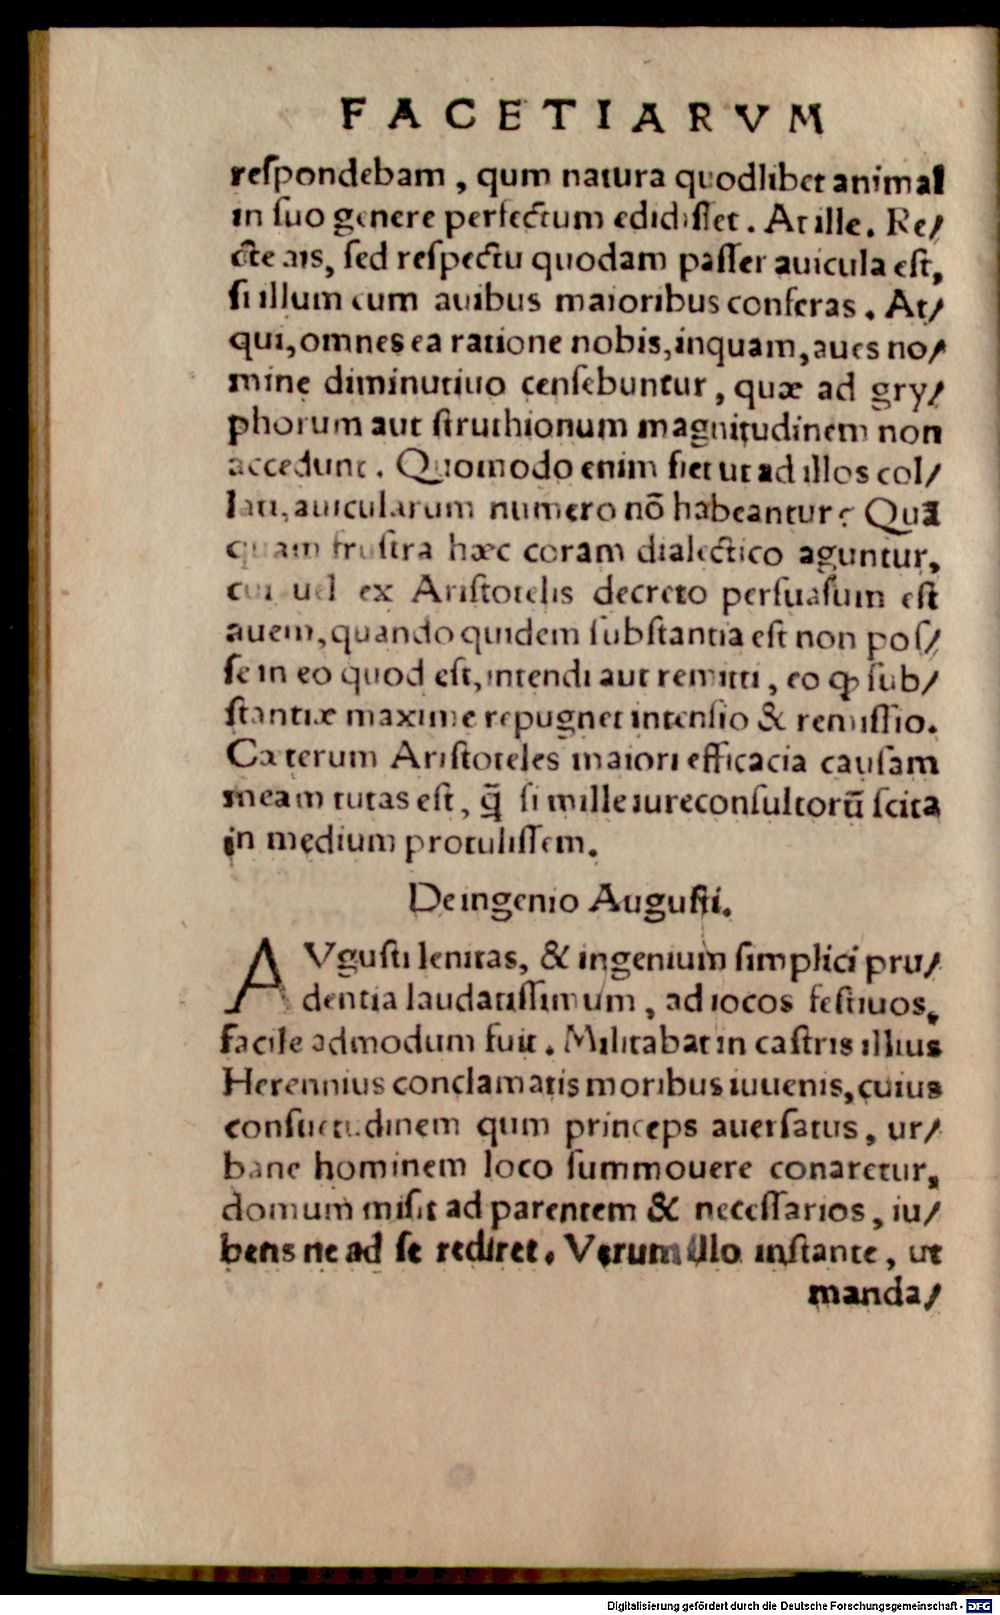 FACETIARVM
reſpondebam, qum natura quodlibet animal
in ſuo genere perfectum edidiſſet. At ille. Re/
cte ais, ſed reſpectu quodam paſſer auicula eſt,
ſi illum cum auibus maioribus conferas. At/
qui, omnes ea ratione nobis, inquam, aues no/
mine diminutiuo cenſebuntur, quæ ad gry/
phorum aut ſtruthionum magnitudinem non
accedunt. Quomodo enim fiet ut ad illos col/
lati, auicularum numero nõ habeantur? Quã
quam fruſtra hæc coram dialectico aguntur,
cui uel ex Ariſtotelis decreto perſuaſum eſt
auem, quando quidem ſubſtantia eſt non poſ/
ſe in eo quod eſt, intendi aut remitti, eo ꝙ ſub/
ſtantiæ maxime repugnet intenſio & remiſſio.
Cæterum Ariſtoteles maiori efficacia cauſam
meam tutas eſt, q̃ ſi mille iureconſultorũ ſcita
in medium protuliſſem.
De ingenio Auguſti.
AVguſti lenitas, & ingenium ſimplici pru/
dentia laudatiſſimum, ad iocos feſtiuos,
facile admodum fuit. Militabat in caſtris illius
Herennius conclamatis moribus iuuenis, cuius
conſuetudinem qum princeps auerſatus, ur/
bane hominem loco ſummouere conaretur,
domum miſit ad parentem & neceſſarios, iu/
bens ne ad ſe rediret. Verum illo inſtante, ut
manda/
Digitalisierung gefördert durch die Deutsche Forschungsgemeinschaft - DFG